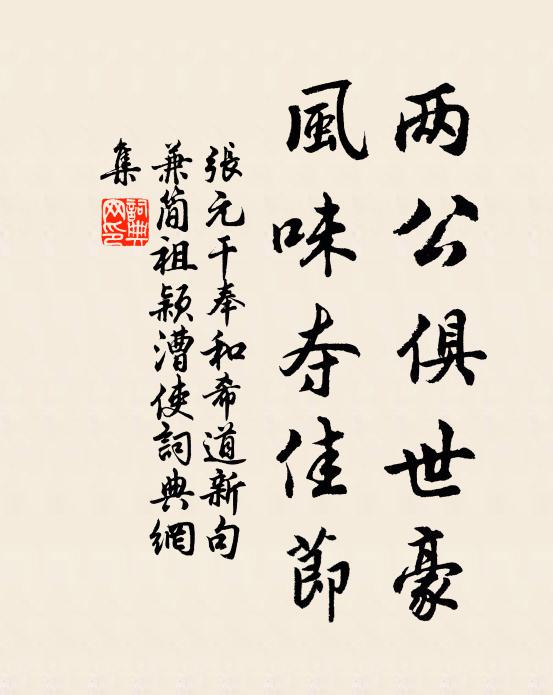 两公俱世豪
風味夺佳節
張元干奉和希道新句
兼简祖颖漕使詞典網
集
詞典網印